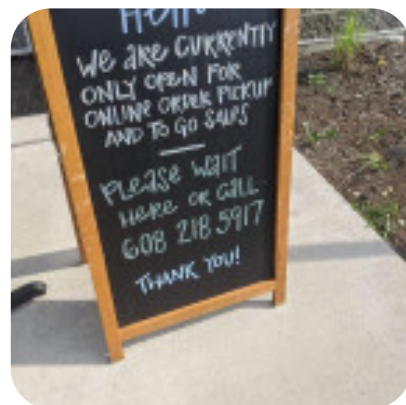 Hello
We are CURRENTLY
ONLY OPEN FOR
ONLINE ORDER PICKUP
AND TO GO SALES
PLEASE WAIT
HERE OR CALL
608 218 5917
THANK YOU!